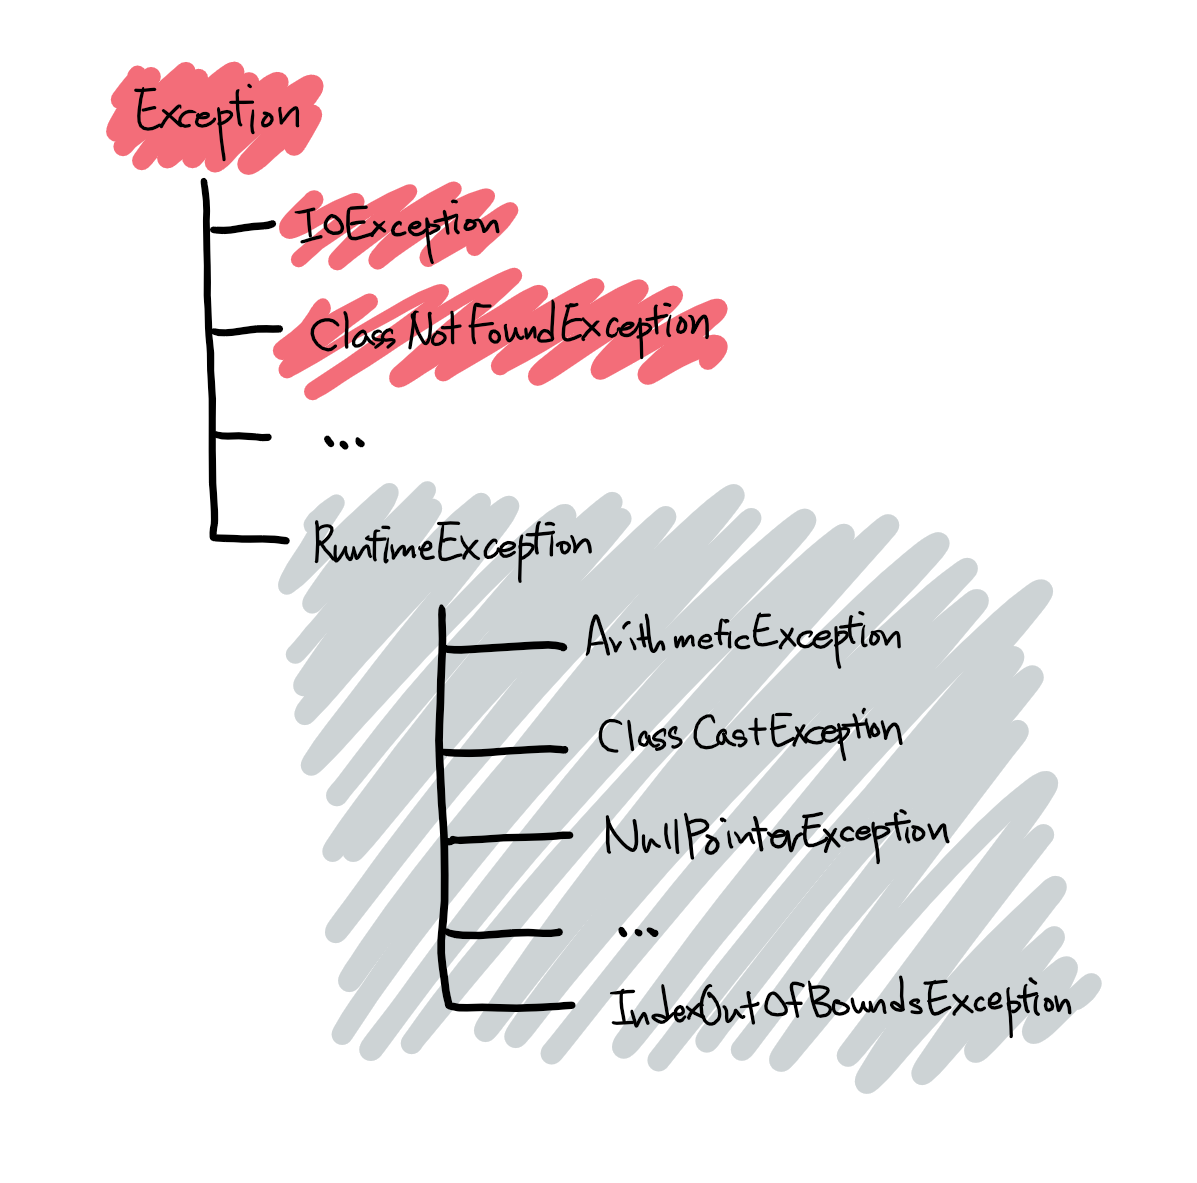 Exception
IOException
ClassNotFoundException
...
RuntimeException
ArithmeticException
ClassCastException
NullPointerException
...
IndexOutOfBoundsException